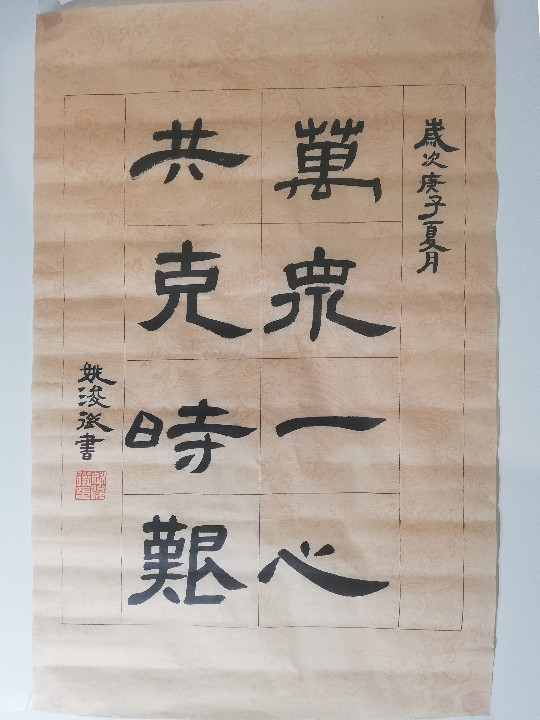 歲次庚子夏月
萬眾一心
共克時艱
姚浚徵書